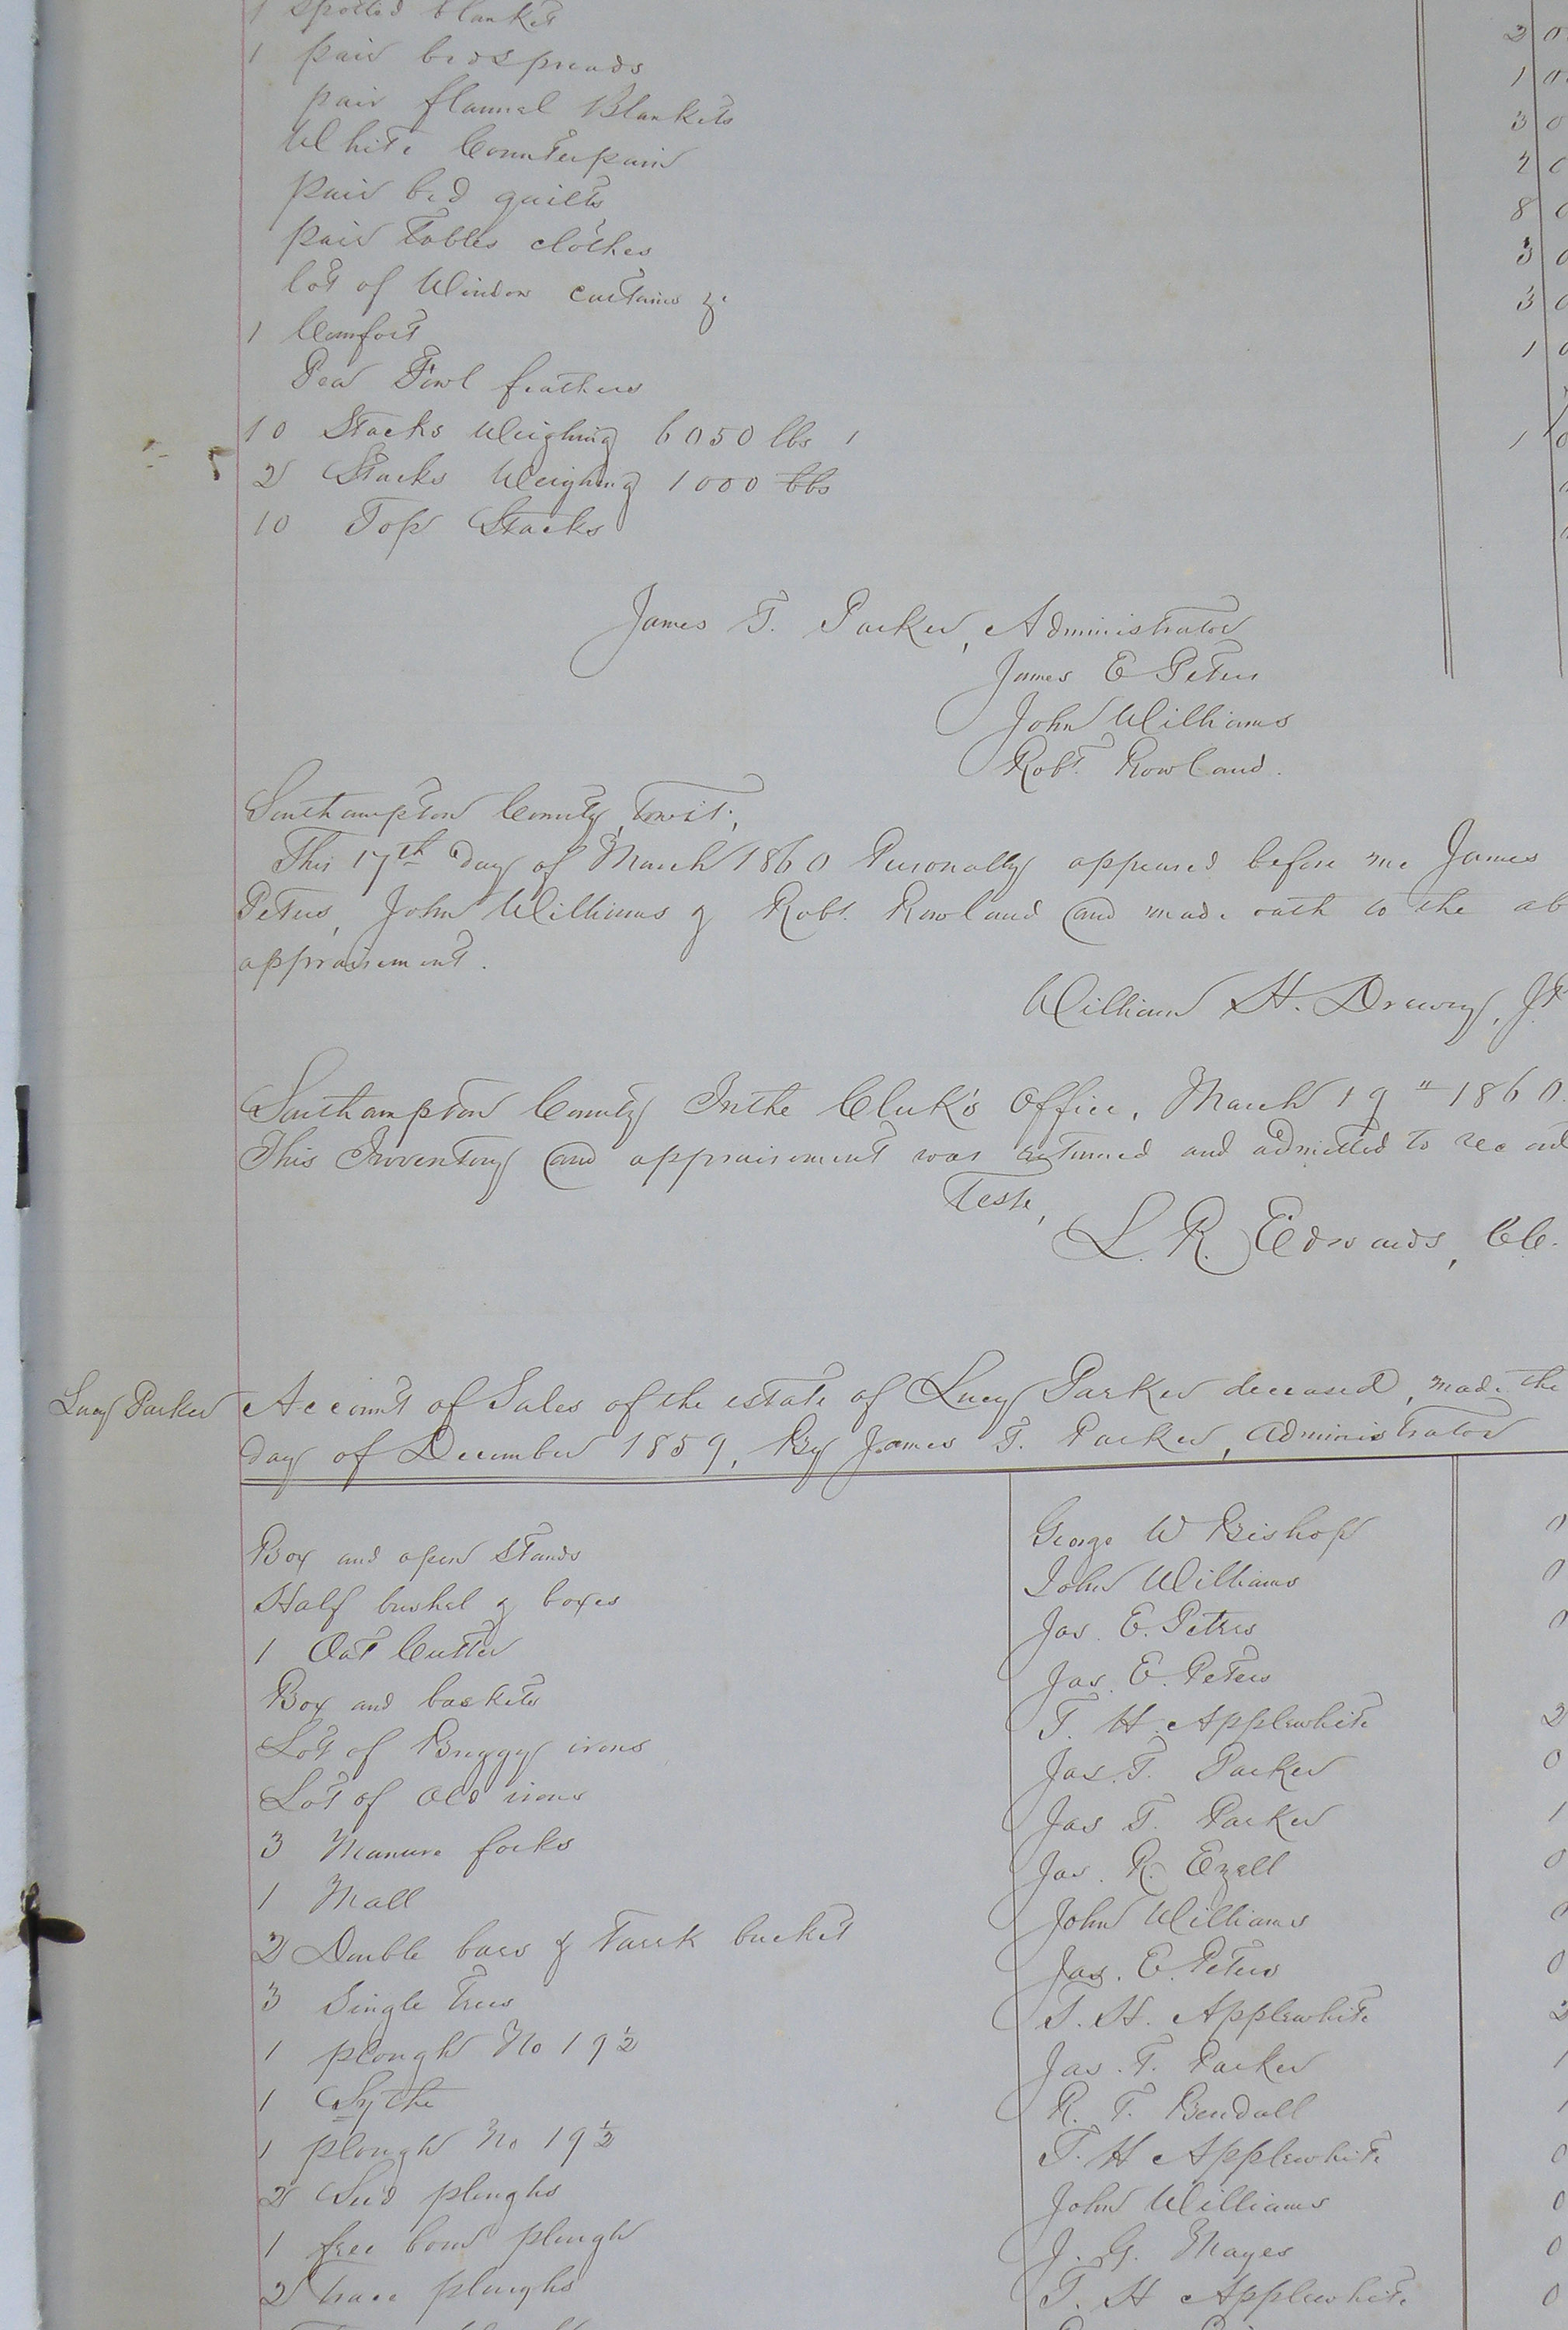 1 spotted blanket
1 pair bedspreads 2 0
pair flannel Blankets 1 0
White Counterpain 3 0
pair bed quilts 0
pair Tables clothes 8 0
lot of Window curtains &c 3 0
1 Comfort 3 0
Pea Fowl feathers 1 0
10 Stacks Weighing 6050 lbs 1
2 Stacks Weighing 1000 lbs
10 Top Stacks
James T. Parker, Administrator
James E Peters
John Williams
Robt. Rowland.
Southampton County, towit;
This 17th day of March 1860 Personally appeared before me James
Peters, John Williams & Robt. Rowland and made oath to the ab
appraisement.
William H. Drewry, JP
Southampton County In the Clerk's Office, March 19" 1860.
This Inventory and appraisement was returned and admitted to record
Teste,
L. R. Edwards, CC.
Lucy Parker Account of Sales of the estate of Lucy Parker deceased, made the
day of December 1859, By James T. Parker, Administrator
Box and open Stands George W Bishop 0
Half bushel & boxes John Williams 0
1 Oat Cutter Jas. E. Peters 0
Box and baskets Jas. E. Peters
Lot of Buggy irons T. H. Applewhite 2
Lot of old irons Jas. T. Parker 0
3 Manure forks Jas T. Parker 1
1 Mall Jas. R. Ezell 0
2 Double bars & bucket John Williams 0
3 Single Trees Jas. E. Peters 0
1 plough No 19 1/2 T. H. Applewhite 2
1 Sythe Jas. T. Parker 1
1 plough No 19 1/2 R. T. Bendall 1
2 Seed ploughs T. H Applewhite 0
1 free bore plough John Williams 0
2 Trace ploughs J. G. Mayes 0
T. H Applewhite. 0